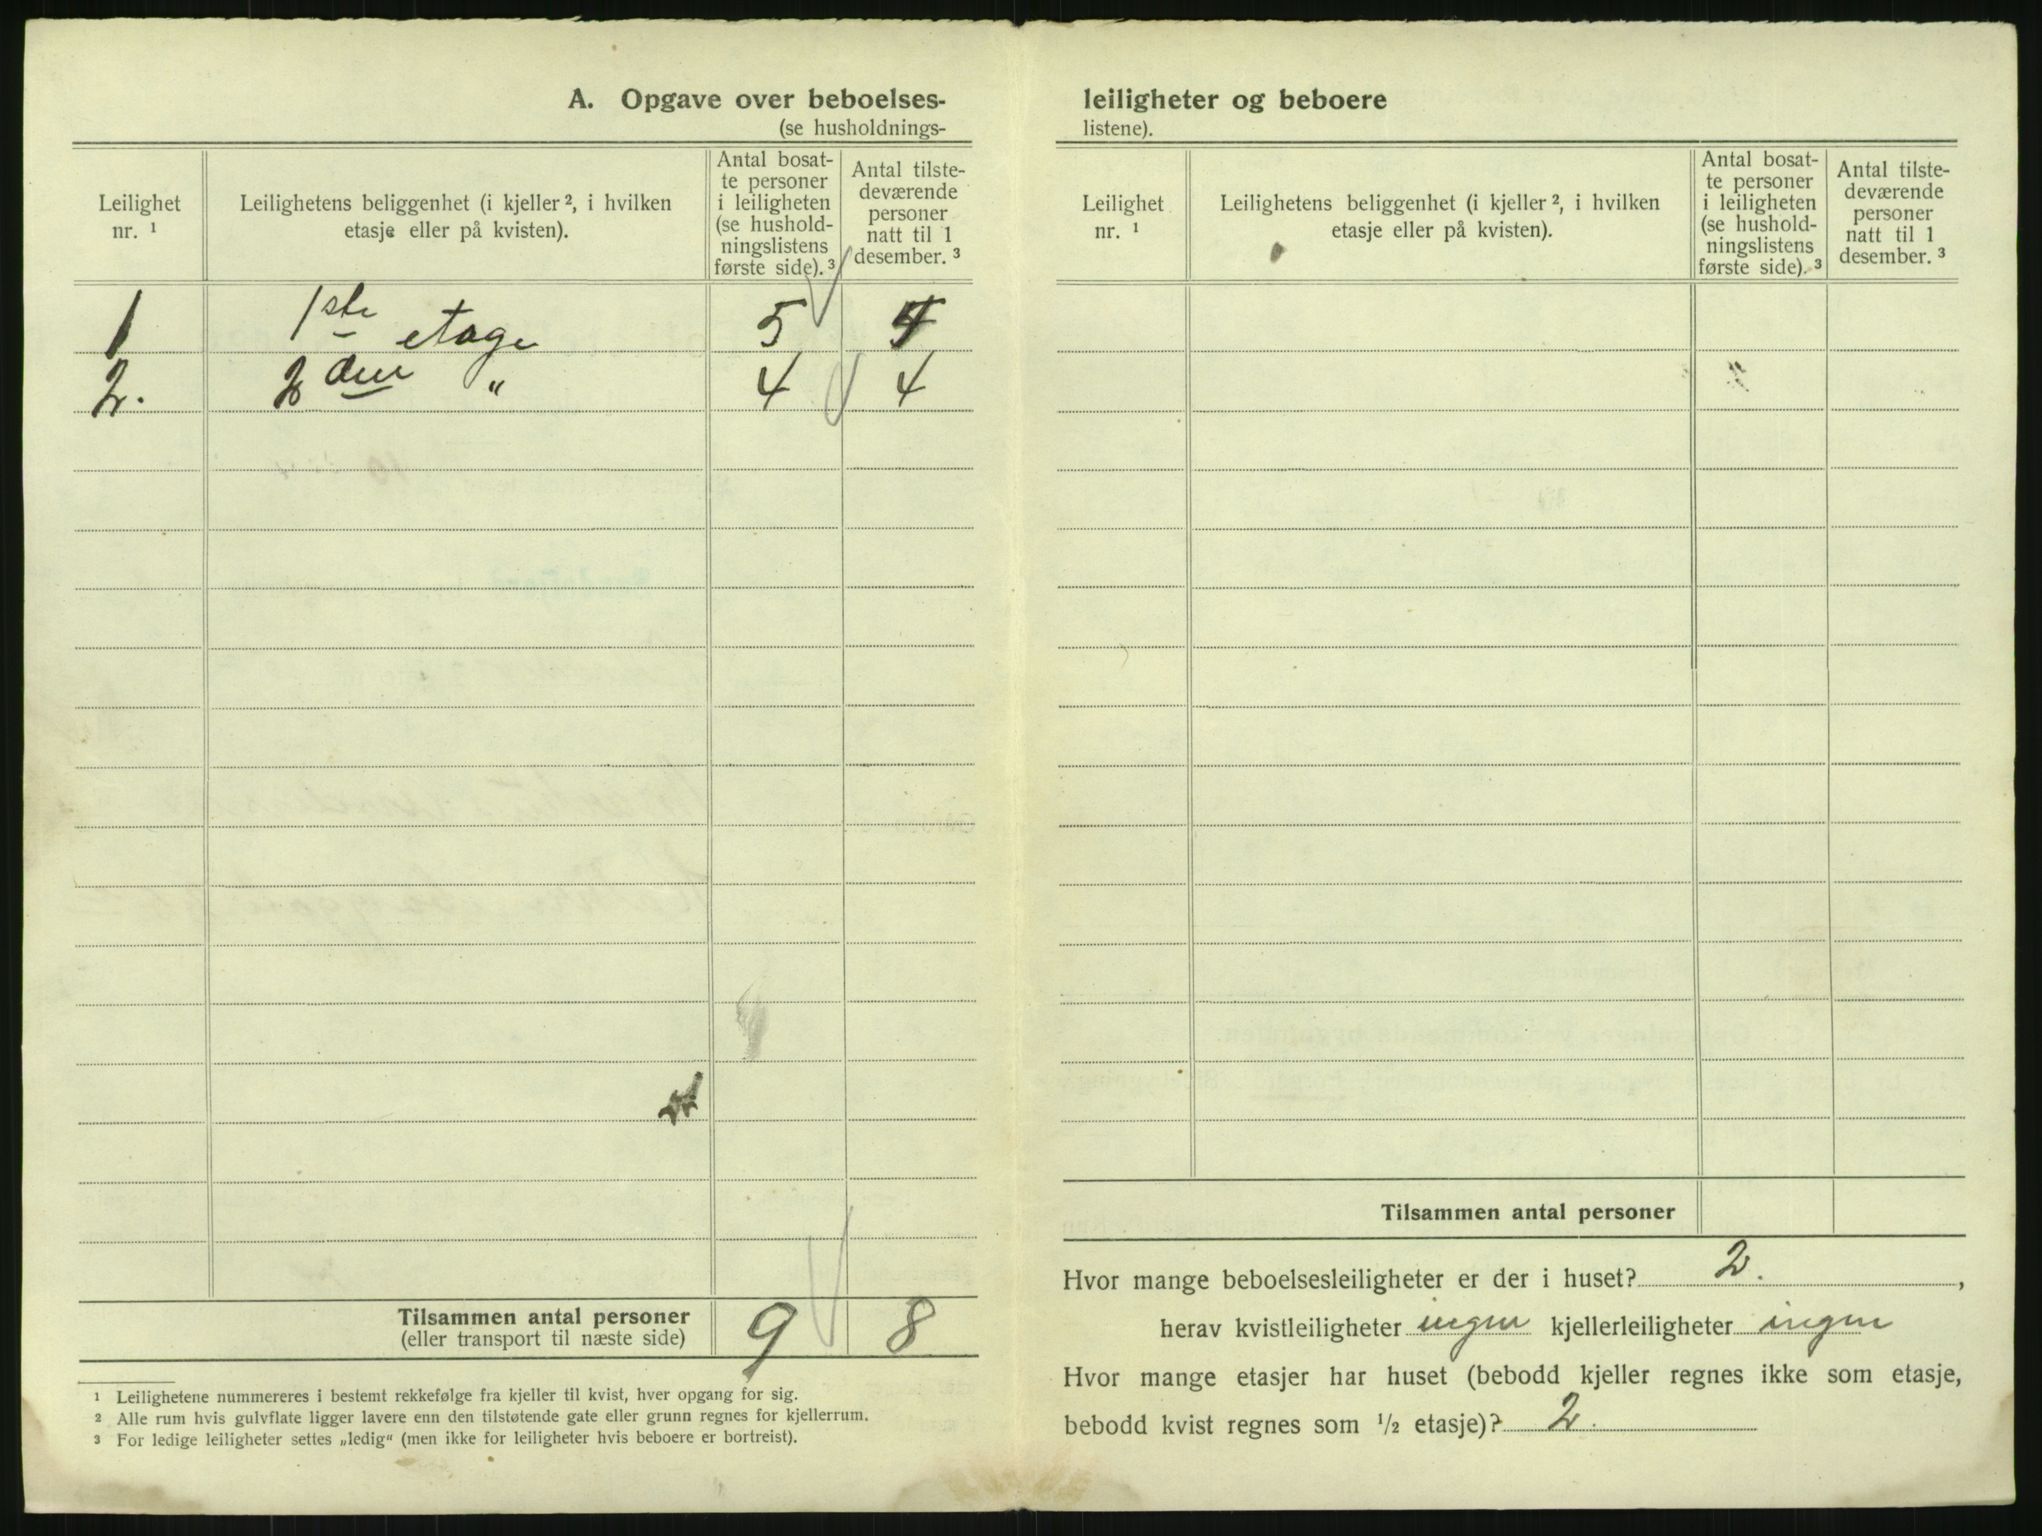 A. Opgave over beboelses-
(se husholdnings-
Leilighet nr. ¹
Leilighetens beliggenhet (i kjeller ², i hvilken etasje eller på kvisten).
Antal bosat-
te personer
i leiligheten
(se hushold-
ningslistens
første side). ³
Antal tilste-
deværende
personer
natt til 1
desember. ³
1 1ste etage 5
2. 2den " 4 4
Tilsammen antal personer 9 8
(eller transport til næste side)
¹ Leilighetene nummereres i bestemt rekkefølge fra kjeller til kvist, hver opgang for sig.
² Alle rum hvis gulvflate ligger lavere enn den tilstøtende gate eller grunn regnes for kjellerrum.
³ For ledige leiligheter settes „ledig“ (men ikke for leiligheter hvis beboere er bortreist).
leiligheter og beboere
listene).
Leilighet nr. ¹
Leilighetens beliggenhet (i kjeller ², i hvilken etasje eller på kvisten).
Antal bosat-
te personer
i leiligheten
(se hushold-
ningslistens
første side). ³
Antal tilste-
deværende
personer
natt til 1
desember. ³
Tilsammen antal personer
Hvor mange beboelsesleiligheter er der i huset? 2.,
herav kvistleiligheter ingen kjellerleiligheter ingen
Hvor mange etasjer har huset (bebodd kjeller regnes ikke som etasje,
bebodd kvist regnes som ½ etasje)? 2.